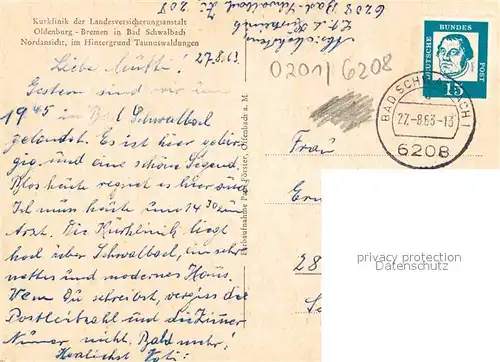 Kurklinik der Landesversicherungsanstalt
Oldenburg - Bremen in Bad Schwalbach
Nordansicht, im Hintergrund Taunuswaldungen
27.8.63
Liebe Mutti!
Gestern sind wir um
1945 in Bad Schwalbach
gelandet. Es ist hier gebir-
gig und eine schöne Gegend.
Blos heute regnet es hier
Ich muss heute um 14.30 zum
Arzt. Die Kurklinik liegt
hoch über Schwalbach, ein sehr
nettes und modernes Haus.
Wenn Du schreibst, vergiss die
Postleitzahl und die Zimmer
Numer nicht. Bald mehr!
Herzlichst
6208 Bad Schwalbach Zi 208
Kurklinik
0201/6208
Farbaufnahme Paul Förster, Offenbach a. M.
DEUTSCHE BUNDESPOST
15
BAD SCHWALBACH 1
27.-8.63-13
6208
Frau
28
privacy protection
Datenschutz